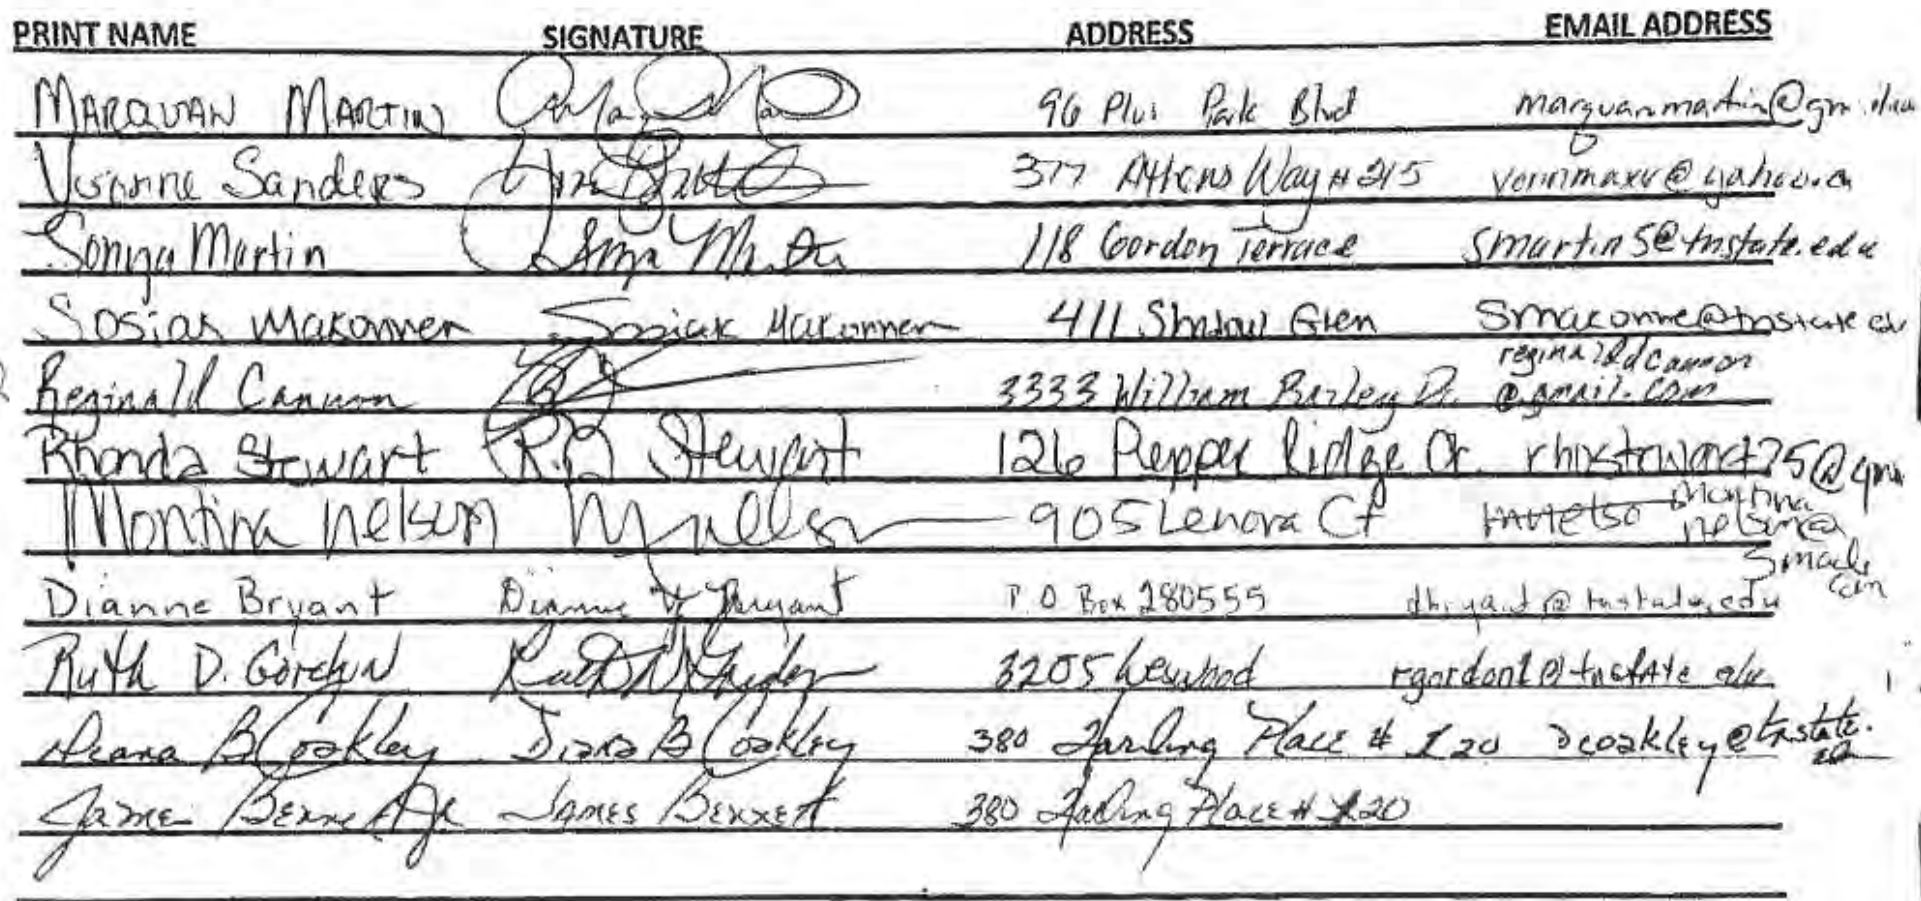 PRINT NAME SIGNATURE ADDRESS EMAIL ADDRESS
MARQUAN MARTIN 96 Plus Park Blvd marquanmartin@
Yvonne Sanders 377 Athens Way # 215
Sonya Martin 118 Gordon Terrace smartin5@tnstate.edu
Sosiak Makonnen Sosiak Makonnen 411 Shadow Glen smakonne@tnstate edu
Reginald Cannon 3333 William Bailey Dr. reginaldcannon
@gmail.com
Rhonda Stewart R.D Stewart 126 Pepper Ridge Cr.
Montina Nelson 905 Lenora Ct montina
nelson@
gmail.
com
Dianne Bryant Dianne Bryant P.O Box 280555 dbryant@tnstate.edu
Ruth D. Gordon 3205 rgordon1@tnstate edu
Diana B Coakley Diana B Coakley 380 Place # 120 dcoakley@tnstate.
edu
James Bennett Jr James Bennett 380 Place # 120